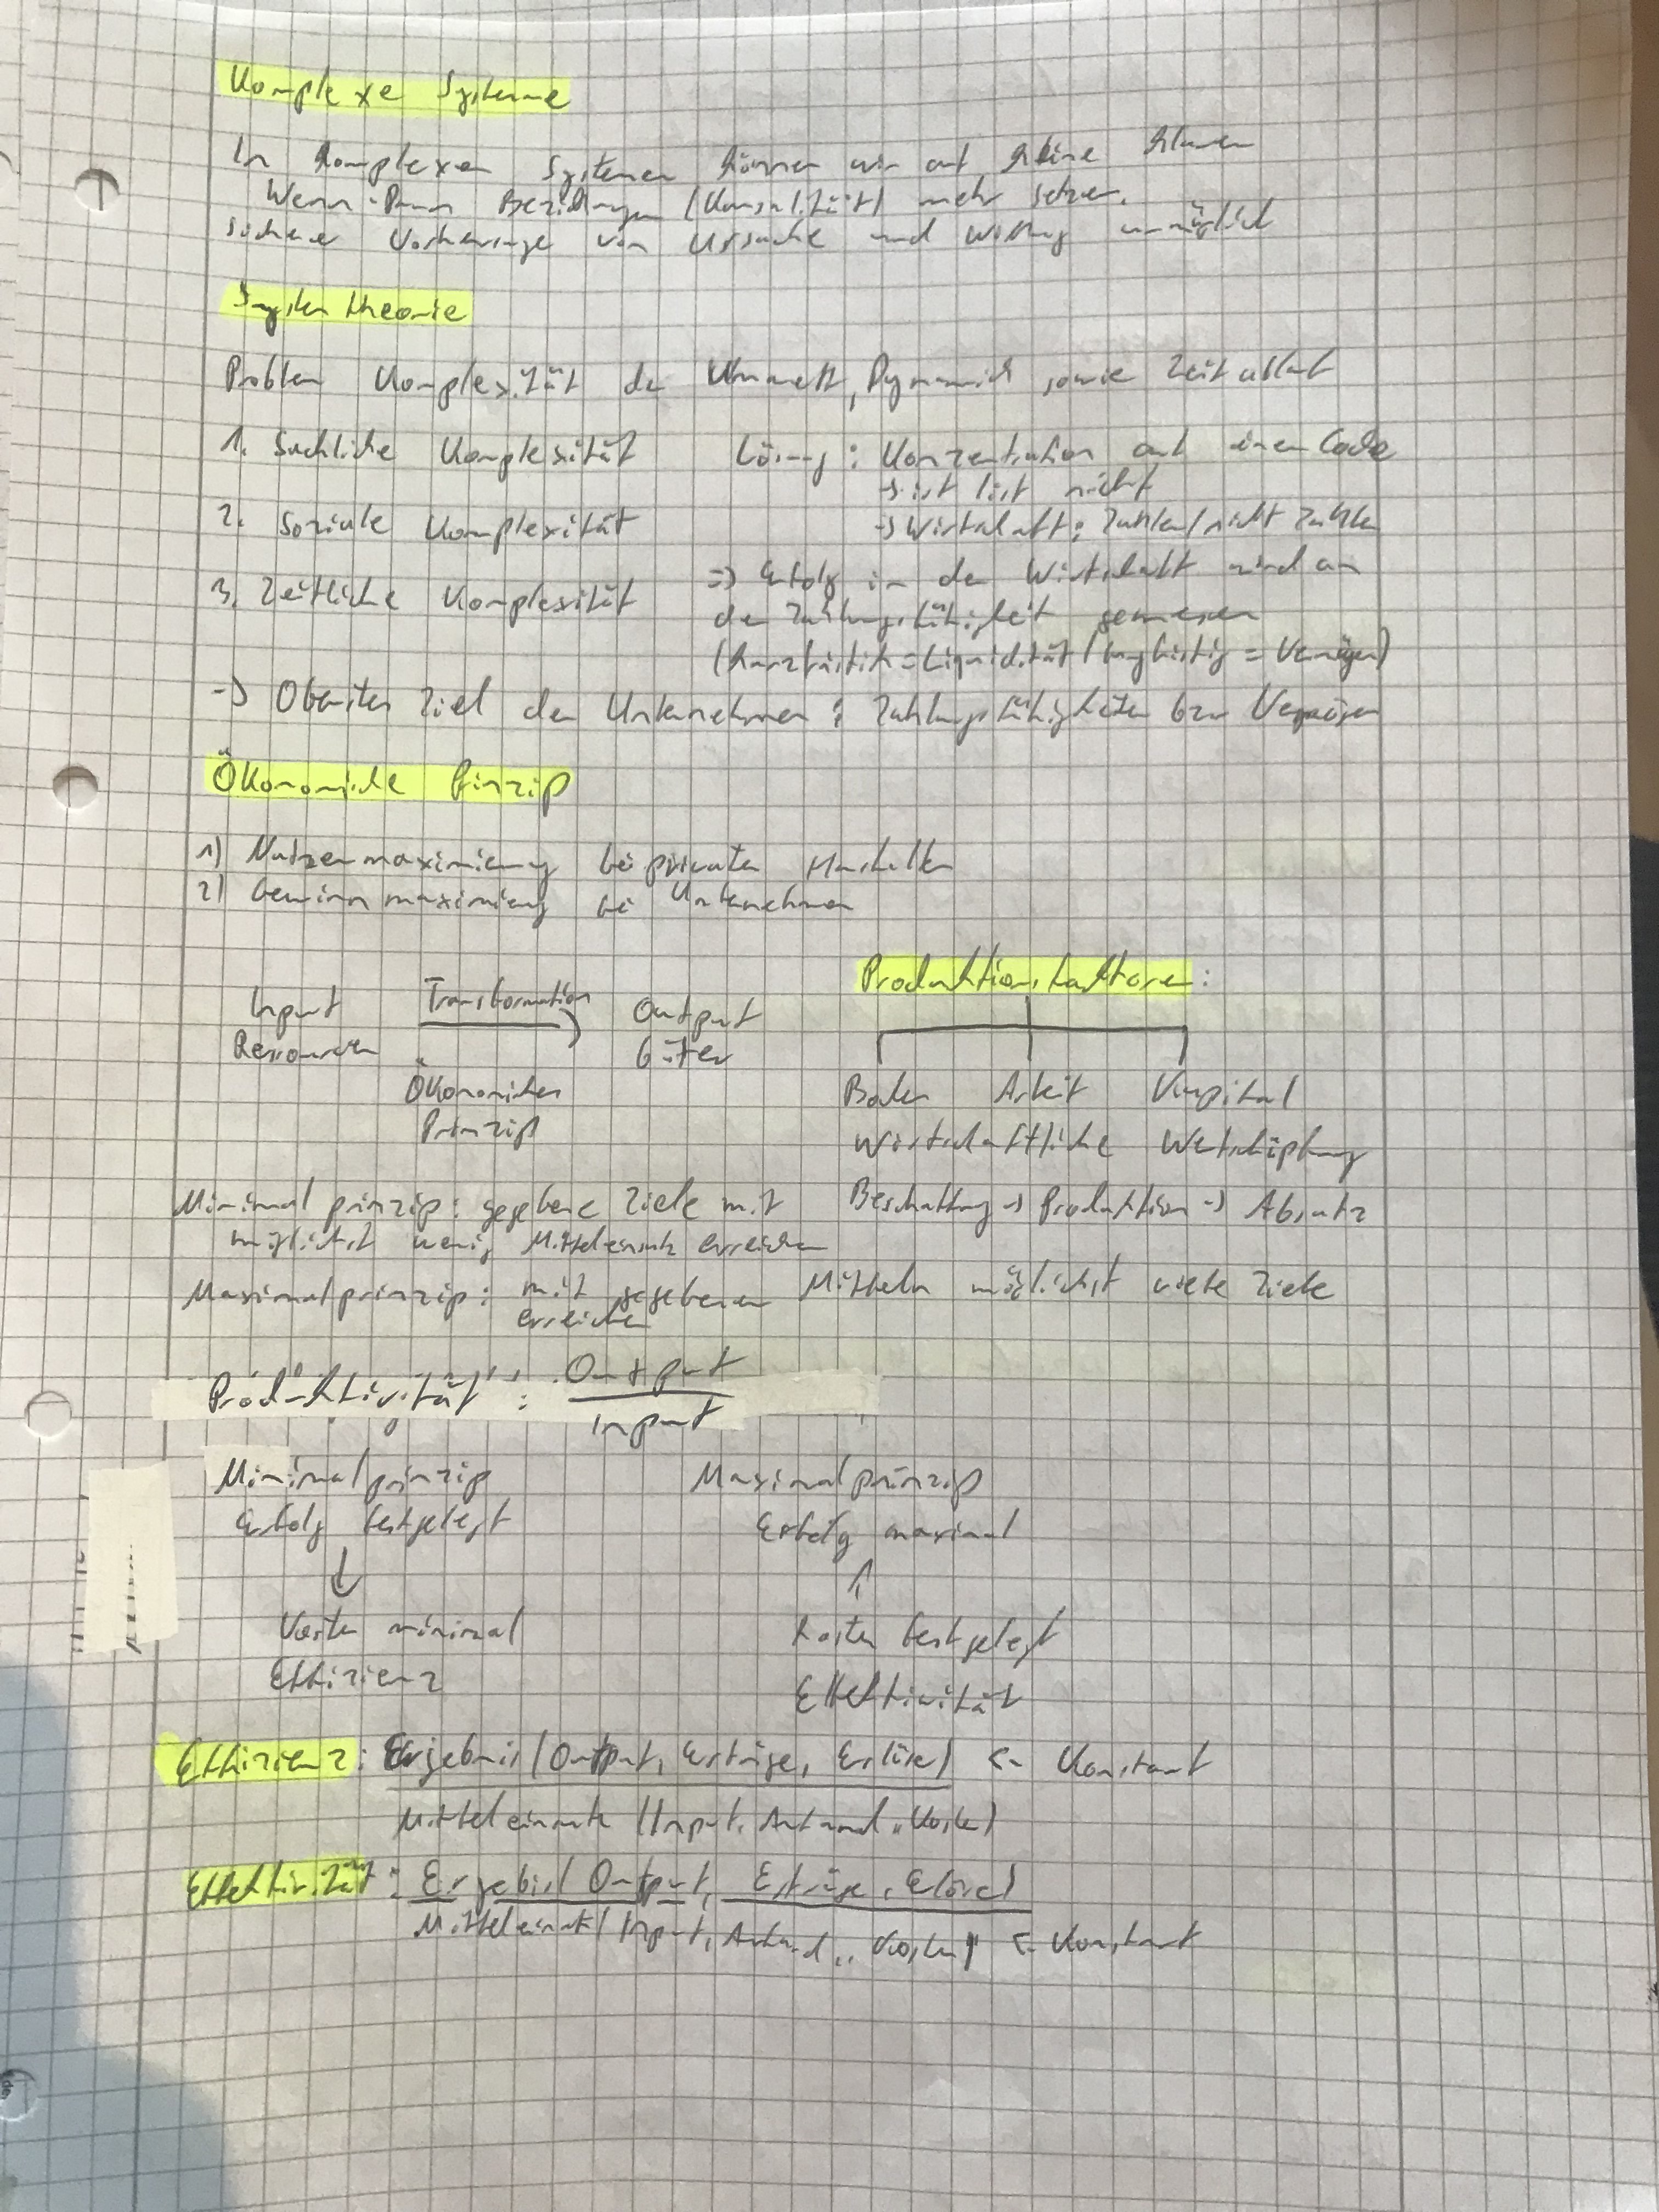 Komplexe Systeme
In komplexen Systemen können wir auf keine klaren
Wenn-Dann Beziehungen (Kausalität) mehr setzen.
sichere Vorhersage von Ursache und Wirkung unmöglich
Systemtheorie
Problem Komplexität der Umwelt, Dynamik sowie Zeitablauf
1. Sachliche Komplexität
Lösung: Konzentration auf einen Code
→ ist / ist nicht
2. Soziale Komplexität
→ Wirtschaft: Zahlen/nicht Zahlen
3. Zeitliche Komplexität
=> Erfolg in der Wirtschaft wird an
der Zahlungsfähigkeit gemessen
(kurzfristik = Liquidität / langfristig = Vermögen)
-> Oberstes Ziel der Unternehmen: Zahlungsfähigkeiten bzw Vermögen
Ökonomische Prinzip
1) Nutzenmaximierung bei privaten Haushalten
2) Gewinnmaximierung bei Unternehmen
Input Transformation Output
Ressourcen Güter
Ökonomisches
Prinzip
Produktionsfaktoren:
Boden Arbeit Kapital
Wirtschaftliche Wertschöpfung
Beschaffung -> Produktion -> Absatz
Minimalprinzip: gegebene Ziele mit
möglichst wenig Mitteleinsatz erreichen
Maximalprinzip: mit gegebenen Mitteln möglichst viele Ziele
erreichen
Produktivität: Output
Input
Minimalprinzip Maximalprinzip
Erfolg festgelegt Erfolg maximal
↓ ↑
Kosten minimal Kosten festgelegt
Effizienz Effektivität
Effizienz: Ergebnis (Output, Erträge, Erlöse) <- Konstant
Mitteleinsatz (Input, Aufwand, Kosten)
Effektivität: Ergebnis (Output, Erträge, Erlöse)
Mitteleinsatz (Input, Aufwand, Kosten) <- Konstant